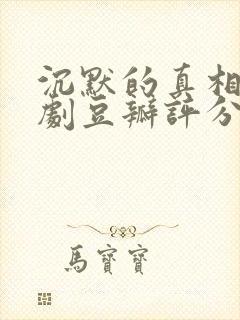 沉默的真相
劇豆瓣評分
馬寶寶